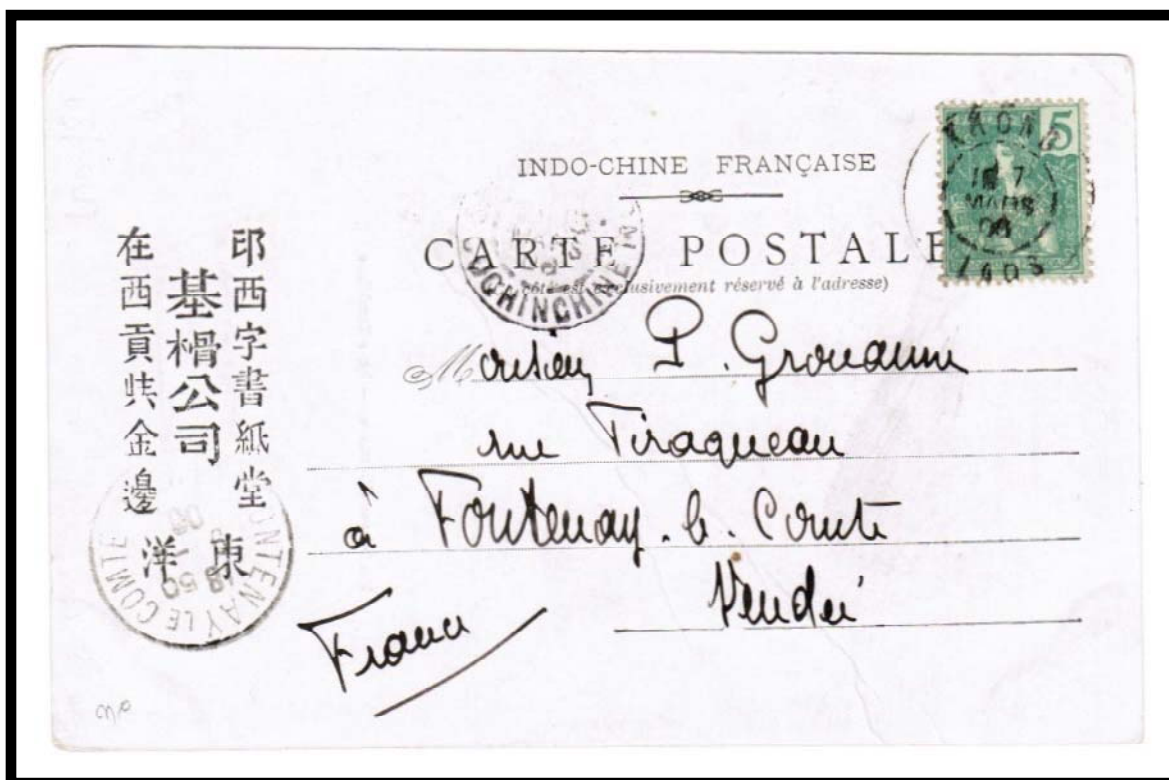 INDO-CHINE FRANÇAISE
CARTE POSTALE
côté est exclusivement réservé à l'adresse)
5
MARS
LAOS
COCHINCHINE
印西字書紙堂
基榾公司
在西貢共金邊
東洋
Monsieur P.
rue Tiraqueau
à Fontenay-le-Comte
Vendée
France
FONTENAY LE COMTE